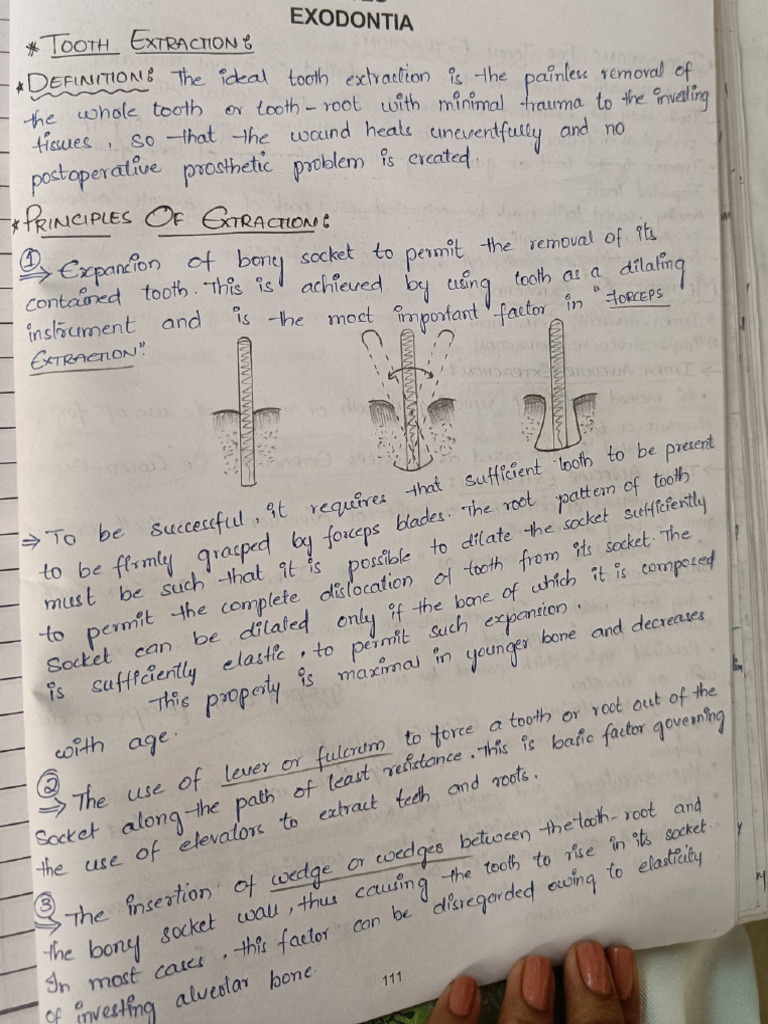 EXODONTIA
* TOOTH EXTRACTION:
* DEFINITION: The ideal tooth extraction is the painless removal of
the whole tooth or tooth-root with minimal trauma to the investing
tissues, so that the wound heals uneventfully and no
postoperative prosthetic problem is created.
* PRINCIPLES OF EXTRACTION:
① ⇒ Expansion of bony socket to permit the removal of its
contained tooth. This is achieved by using tooth as a dilating
instrument and is the most important factor in "FORCEPS
EXTRACTION".
⇒ To be successful, it requires that sufficient tooth to be present
to be firmly grasped by forceps blades. The root pattern of tooth
must be such that it is possible to dilate the socket sufficiently
to permit the complete dislocation of tooth from its socket. The
Socket can be dilated only if the bone of which it is composed
is sufficiently elastic, to permit such expansion.
This property is maximal in younger bone and decreases
with age.
② ⇒ The use of lever or fulcrum to force a tooth or root out of the
Socket along the path of least resistance. This is basic factor governing
the use of elevators to extract teeth and roots.
③ ⇒ The insertion of wedge or wedges between the tooth-root and
the bony socket wall, thus causing the tooth to rise in its socket.
In most cases, this factor can be disregarded owing to elasticity
of investing alveolar bone.
111